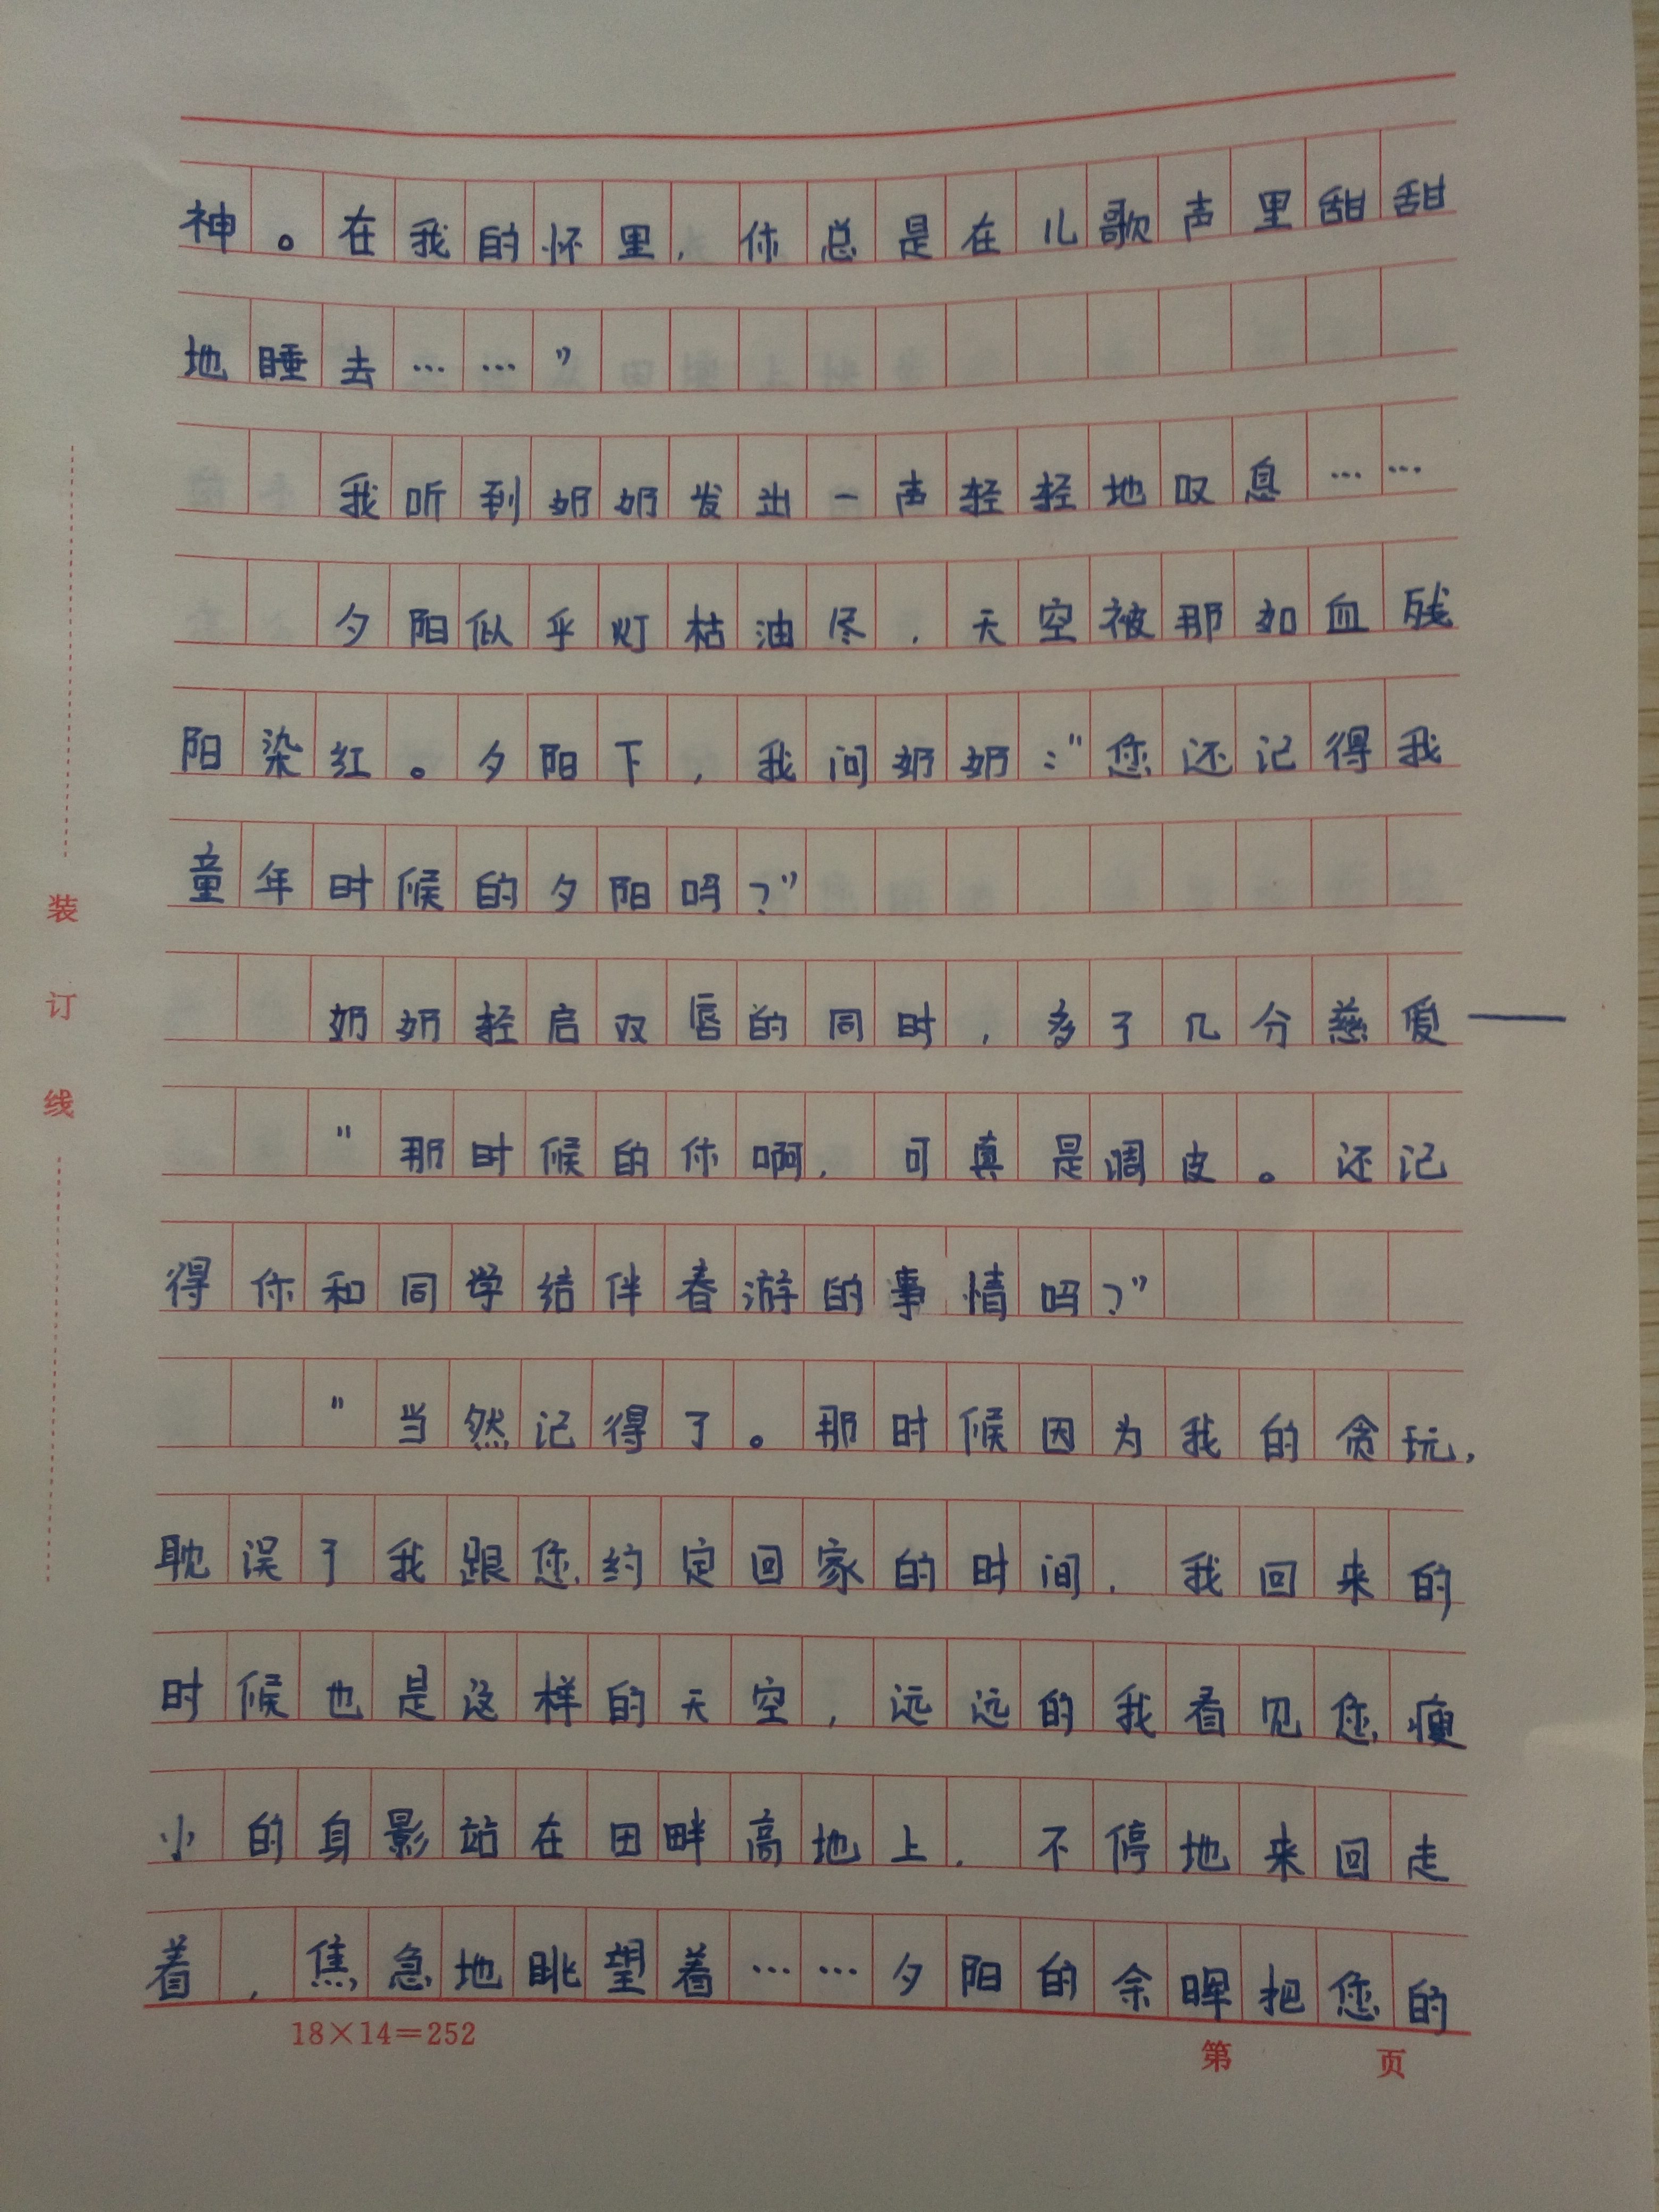 神。在我的怀里，你总是在儿歌声里甜甜
地睡去……”
我听到奶奶发出一声轻轻地叹息……
夕阳似乎灯枯油尽，天空被那如血残
阳染红。夕阳下，我问奶奶：“您还记得我
童年时候的夕阳吗？”
奶奶轻启双唇的同时，多了几分慈爱——
“那时候的你啊，可真是调皮。还记
得你和同学结伴春游的事情吗？”
“当然记得了。那时候因为我的贪玩，
耽误了我跟您约定回家的时间，我回来的
时候也是这样的天空，远远的我看见您瘦
小的身影站在田畔高地上，不停地来回走
着，焦急地眺望着……夕阳的余晖把您的
装
订
线
18×14=252
第 页